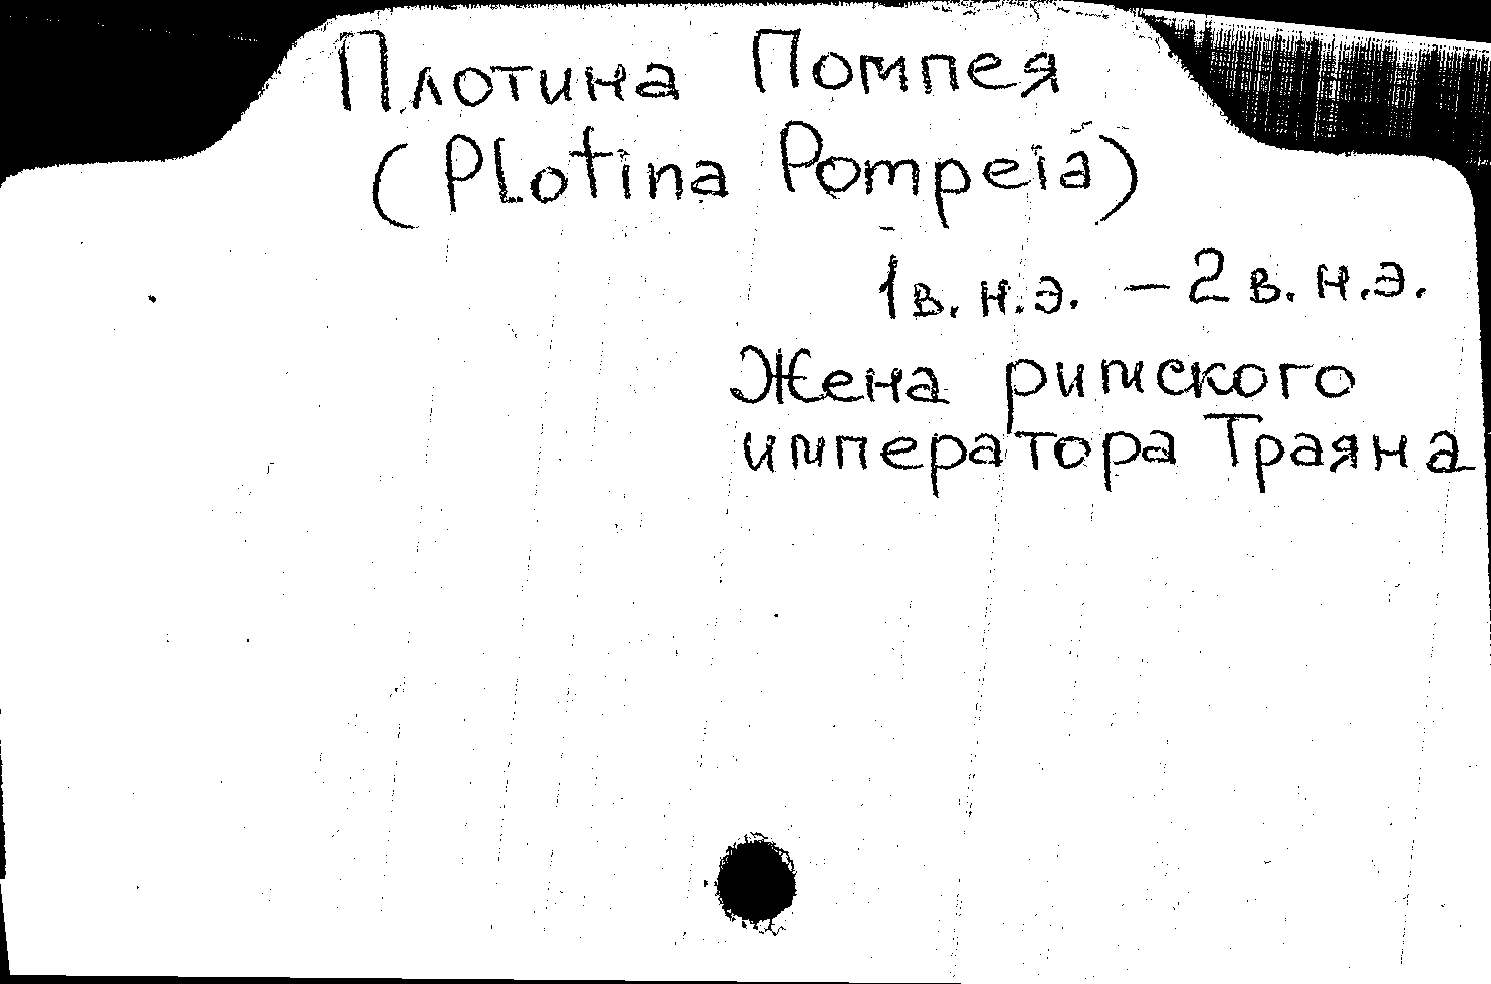 Плотина Помпея
(Plotina Pompeia)
1 в. н.э. – 2 в. н.э.
Жена римского
императора Траяна